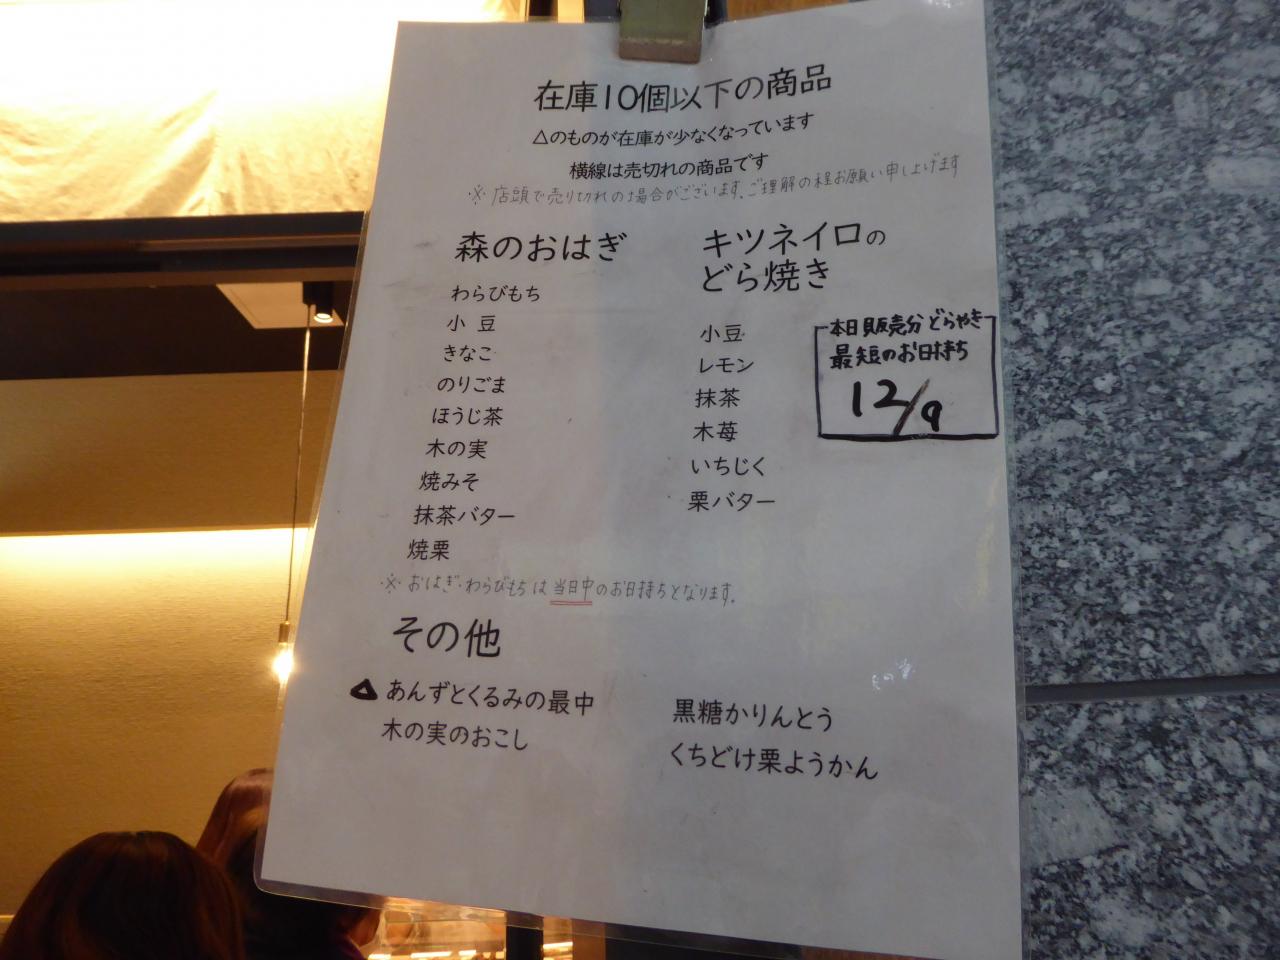 在庫10個以下の商品
△のものが在庫が少なくなっています
横線は売切れの商品です
※店頭で売り切れの場合がございます。ご理解の程お願い申し上げます
森のおはぎ
わらびもち
小豆
きなこ
のりごま
ほうじ茶
木の実
焼みそ
抹茶バター
焼栗
※おはぎ・わらびもちは当日中のお日持ちとなります。
キツネイロの
どら焼き
小豆
レモン
抹茶
木苺
いちじく
栗バター
本日販売分どらやき
最短のお日持ち
12/9
その他
△あんずとくるみの最中
木の実のおこし
黒糖かりんとう
くちどけ栗ようかん